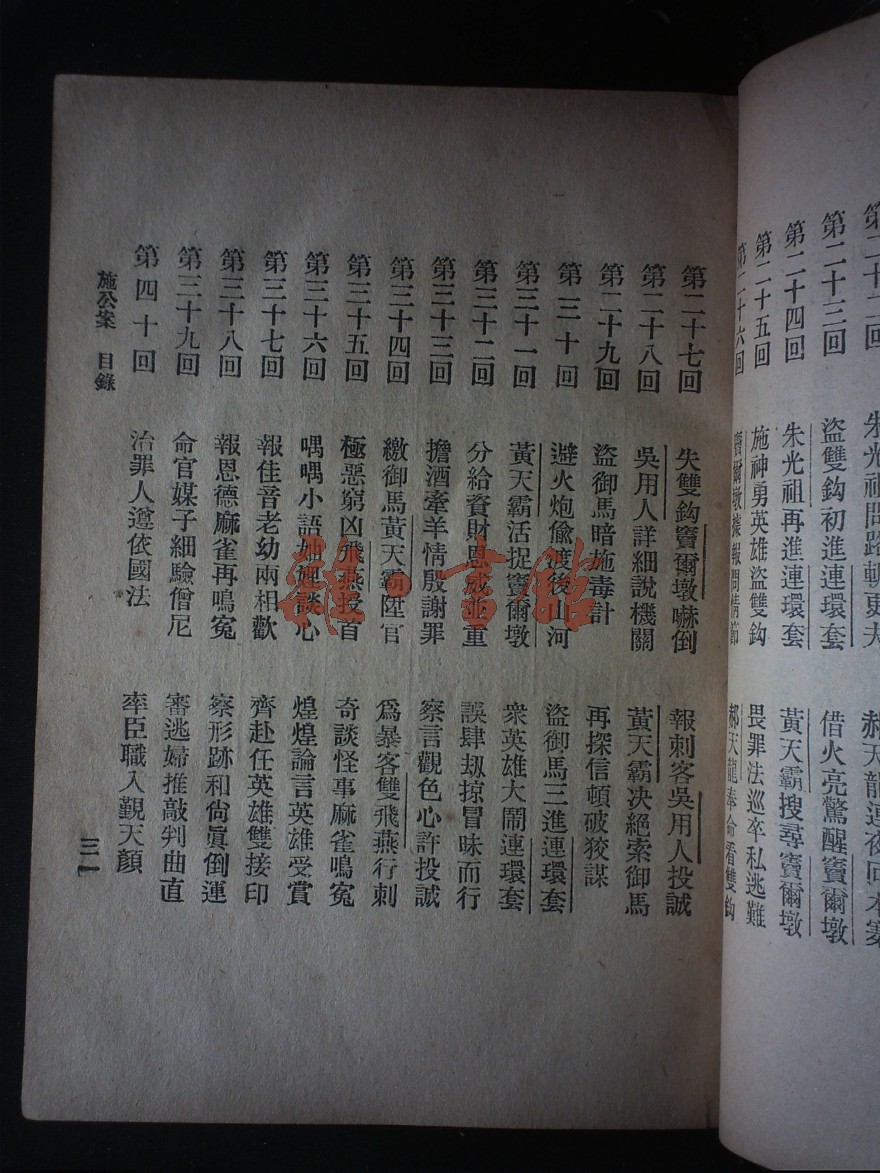 第二十三回　盜雙鈎初進連環套　借火亮驚醒竇爾墩
第二十四回　朱光祖再進連環套　黃天霸搜尋竇爾墩
第二十五回　施神勇英雄盜雙鈎　畏罪法巡卒私逃難
第二十六回　竇爾墩據報問情節　郝天龍奉命看雙鈎
第二十七回　失雙鈎竇爾墩嚇倒　報刺客吳用人投誠
第二十八回　吳用人詳細說機關　黃天霸决絕索御馬
第二十九回　盜御馬暗施毒計　再探信頓破狡謀
第三十回　避火炮偸渡後山河　盜御馬三進連環套
第三十一回　黃天霸活捉竇爾墩　衆英雄大鬧連環套
第三十二回　分給資財恩威並重　誤肆刼掠冒昧而行
第三十三回　擔酒牽羊情殷謝罪　察言觀色心許投誠
第三十四回　繳御馬黃天霸陞官　爲暴客雙飛燕行刺
第三十五回　極惡窮凶飛燕授首　奇談怪事麻雀鳴冤
第三十六回　喁喁小語妯娌談心　煌煌論言英雄受賞
第三十七回　報佳音老幼兩相歡　齊赴任英雄雙接印
第三十八回　報恩德麻雀再鳴冤　察形跡和尙眞倒運
第三十九回　命官媒子細驗僧尼　審逃婦推敲判曲直
第四十回　治罪人遵依國法　率臣職入覲天顏
施公案　目錄　三一
雜·書館